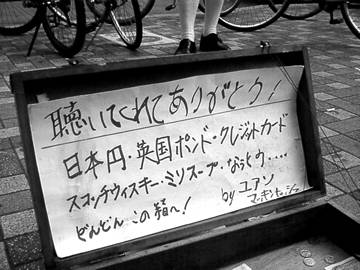 聴いてくれてありがとう!
日本円・英国ポンド・クレジットカード
スコッチウィスキー・ミソスープ・なっとう....
どんどんこの箱へ!
by ユアン
マッキンタッシュ